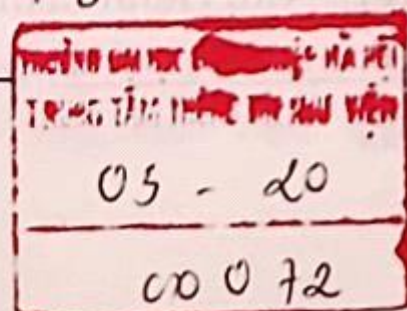 TRƯỜNG ĐẠI HỌC HÀ NỘI
TRUNG TÂM THÔNG TIN THƯ VIỆN
05 - 20
00072